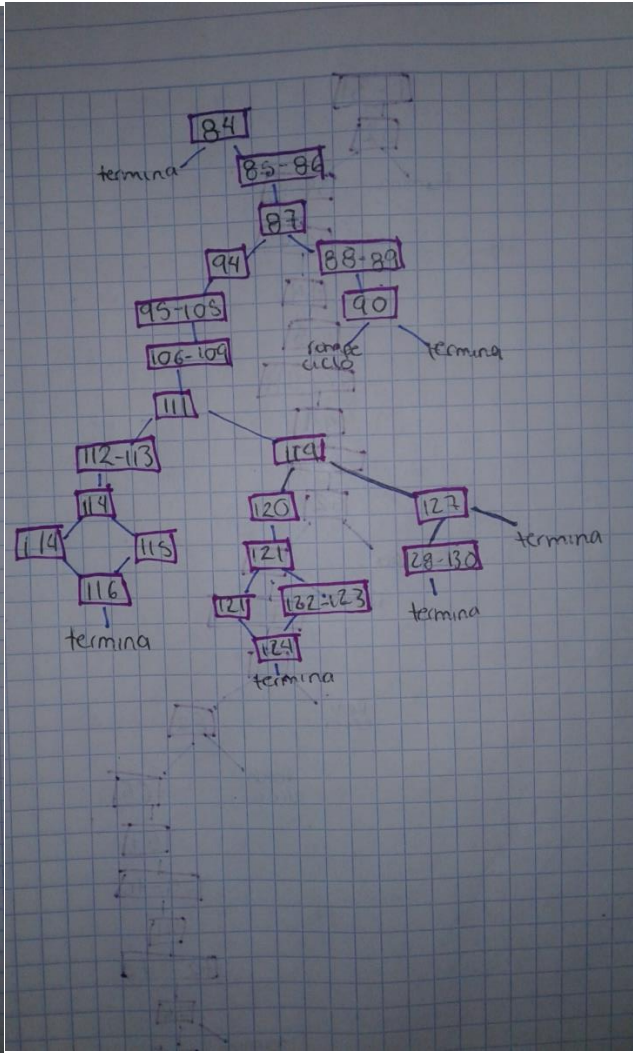 84
termina
85-86
87
94
88-89
95-105
90
106-109
rompe
ciclo
termina
111
112-113
119
114
120
127
114
115
121
28-130
termina
116
121
122-123
termina
termina
124
termina